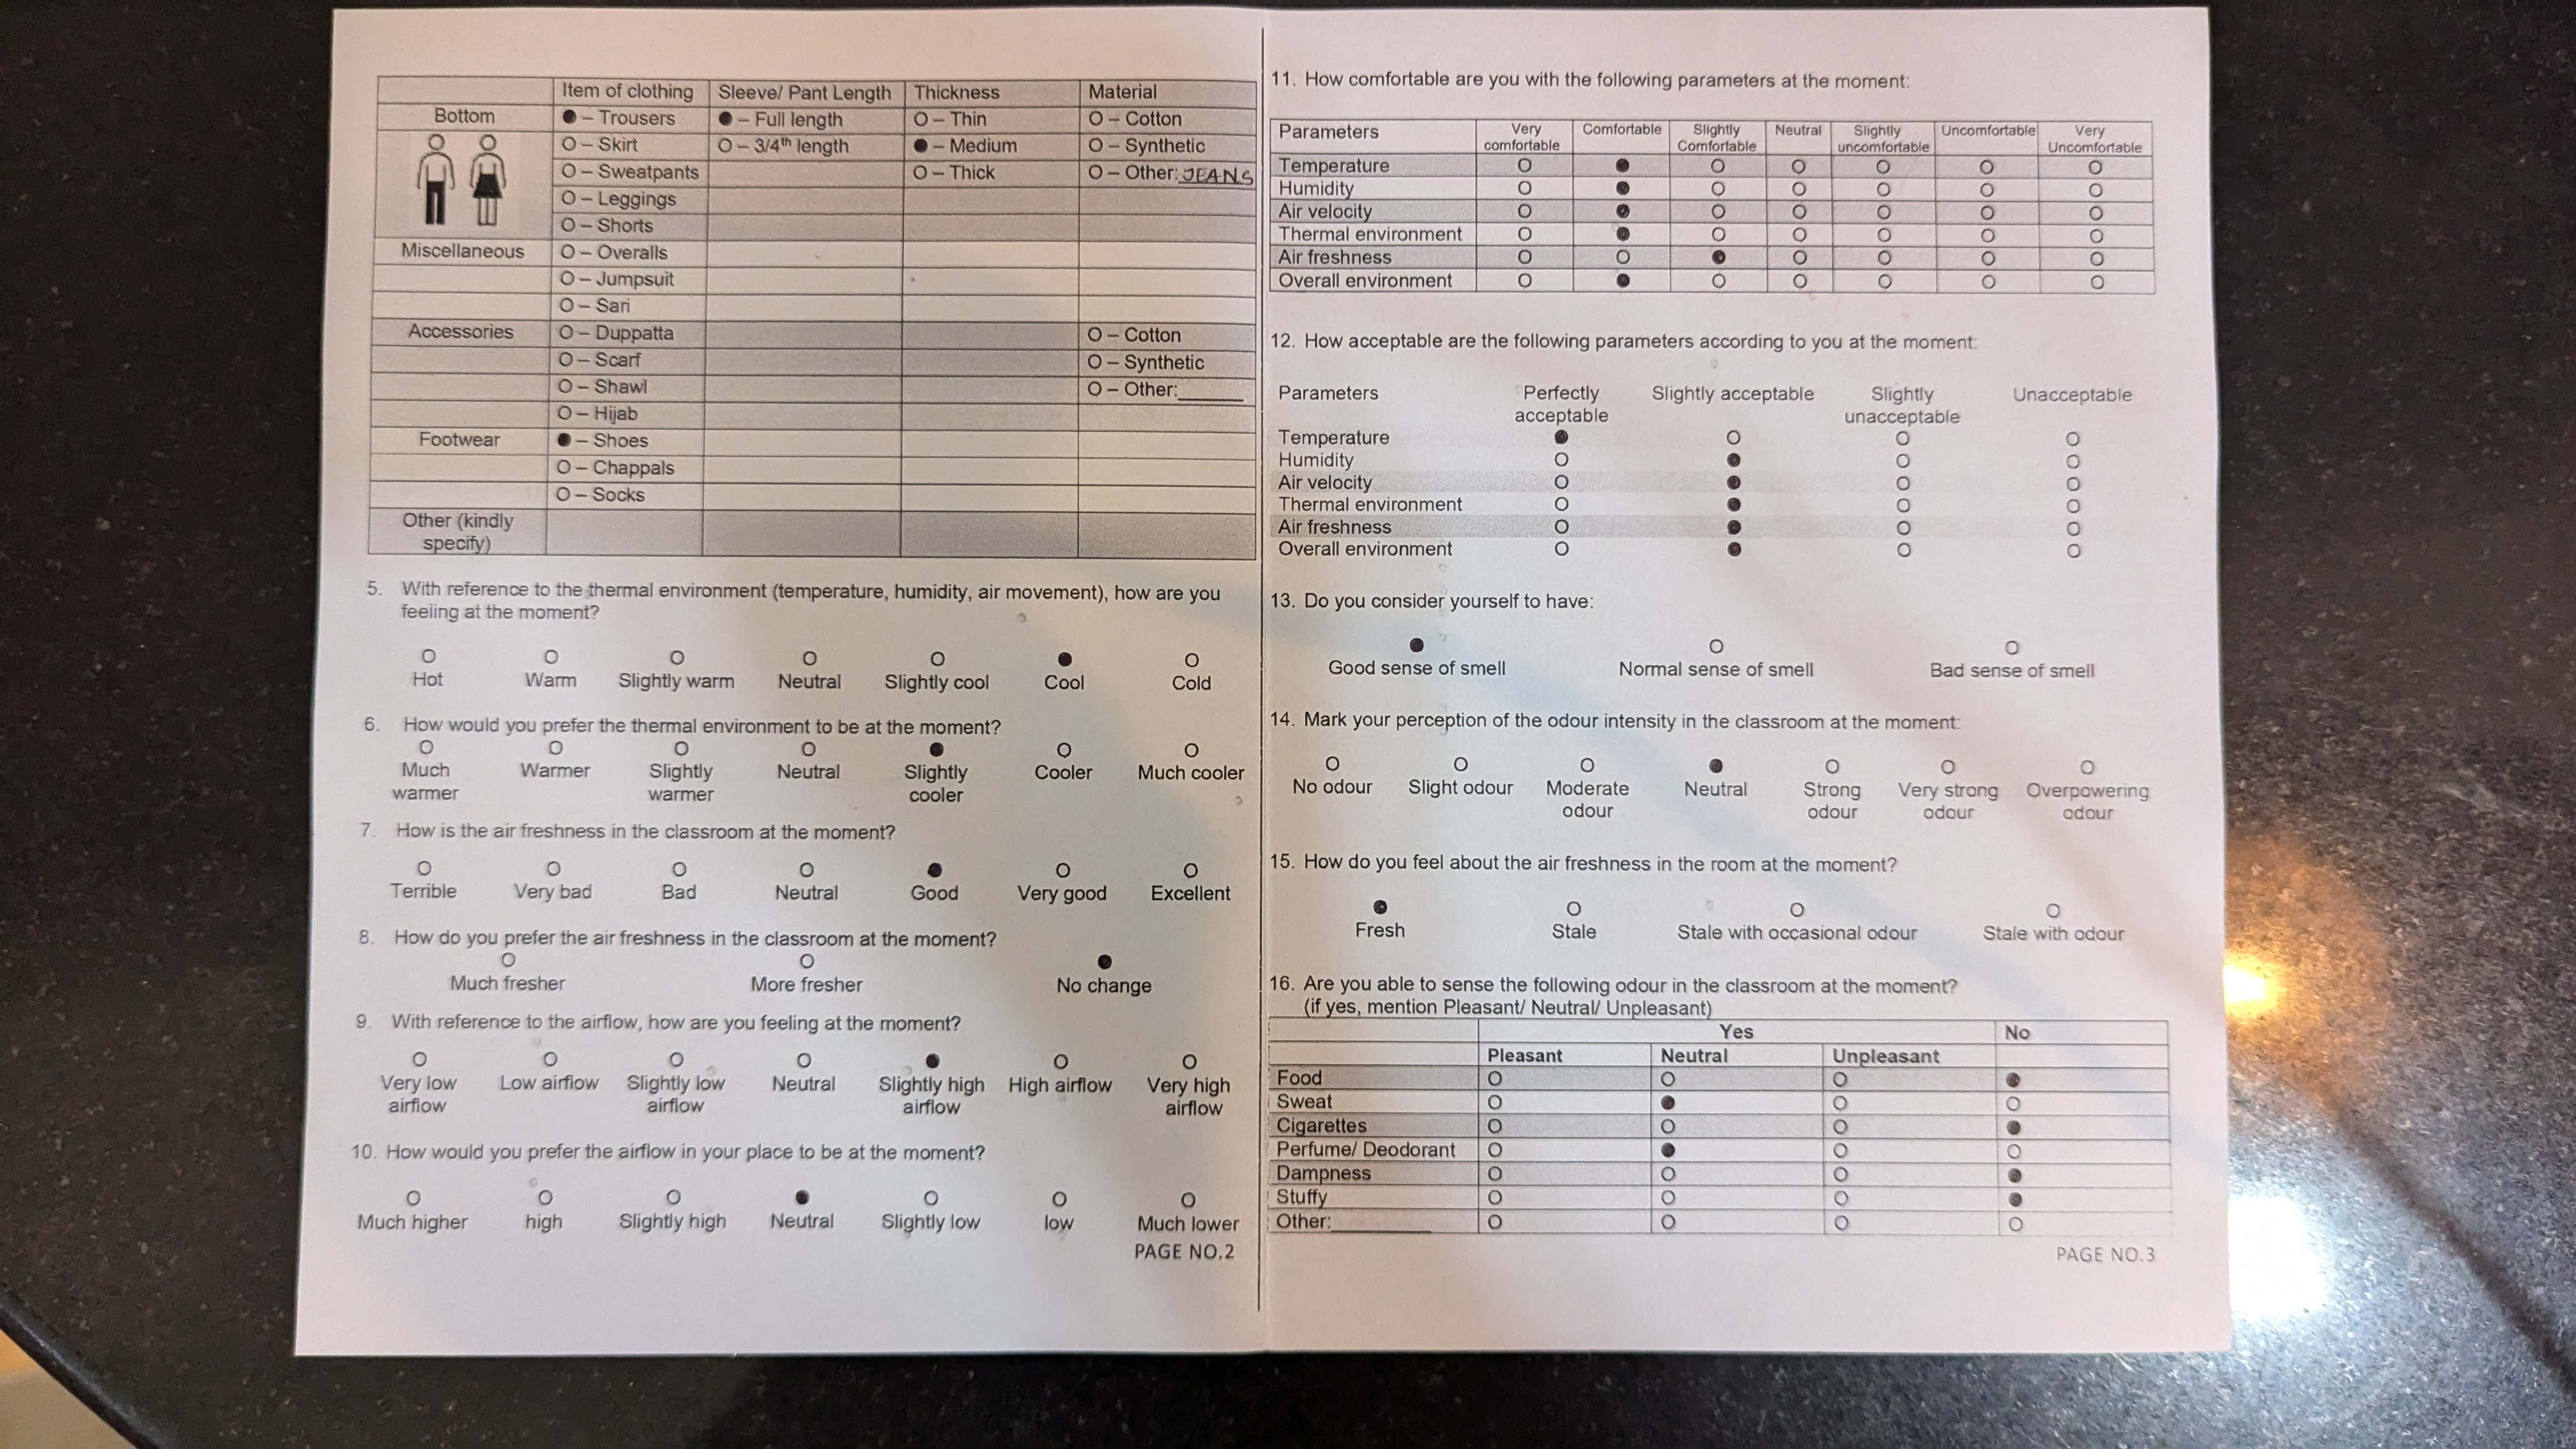 Item of clothing Sleeve/ Pant Length Thickness Material
Bottom ● – Trousers ● – Full length O – Thin O – Cotton
O – Skirt O – 3/4th length ● – Medium O – Synthetic
O – Sweatpants O – Thick O – Other: JEANS
O – Leggings
O – Shorts
Miscellaneous O – Overalls
O – Jumpsuit
O – Sari
Accessories O – Duppatta O – Cotton
O – Scarf O – Synthetic
O – Shawl O – Other:______
O – Hijab
Footwear ● – Shoes
O – Chappals
O – Socks
Other (kindly
specify)
5. With reference to the thermal environment (temperature, humidity, air movement), how are you
feeling at the moment?
O O O O O ● O
Hot Warm Slightly warm Neutral Slightly cool Cool Cold
6. How would you prefer the thermal environment to be at the moment?
O O O O ● O O
Much Warmer Slightly Neutral Slightly Cooler Much cooler
warmer warmer cooler
7. How is the air freshness in the classroom at the moment?
O O O O ● O O
Terrible Very bad Bad Neutral Good Very good Excellent
8. How do you prefer the air freshness in the classroom at the moment?
O O ●
Much fresher More fresher No change
9. With reference to the airflow, how are you feeling at the moment?
O O O O ● O O
Very low Low airflow Slightly low Neutral Slightly high High airflow Very high
airflow airflow airflow airflow
10. How would you prefer the airflow in your place to be at the moment?
O O O ● O O O
Much higher high Slightly high Neutral Slightly low low Much lower
PAGE NO.2
11. How comfortable are you with the following parameters at the moment:
Parameters Very Comfortable Slightly Neutral Slightly Uncomfortable Very
comfortable Comfortable uncomfortable Uncomfortable
Temperature O ● O O O O O
Humidity O ● O O O O O
Air velocity O ● O O O O O
Thermal environment O ● O O O O O
Air freshness O O ● O O O O
Overall environment O ● O O O O O
12. How acceptable are the following parameters according to you at the moment:
Parameters Perfectly Slightly acceptable Slightly Unacceptable
acceptable unacceptable
Temperature ● O O O
Humidity O ● O O
Air velocity O ● O O
Thermal environment O ● O O
Air freshness O ● O O
Overall environment O ● O O
13. Do you consider yourself to have:
● O O
Good sense of smell Normal sense of smell Bad sense of smell
14. Mark your perception of the odour intensity in the classroom at the moment:
O O O ● O O O
No odour Slight odour Moderate Neutral Strong Very strong Overpowering
odour odour odour odour
15. How do you feel about the air freshness in the room at the moment?
● O O O
Fresh Stale Stale with occasional odour Stale with odour
16. Are you able to sense the following odour in the classroom at the moment?
(if yes, mention Pleasant/ Neutral/ Unpleasant)
Yes No
Pleasant Neutral Unpleasant
Food O O O ●
Sweat O ● O O
Cigarettes O O O ●
Perfume/ Deodorant O ● O O
Dampness O O O ●
Stuffy O O O ●
Other:_________ O O O O
PAGE NO.3